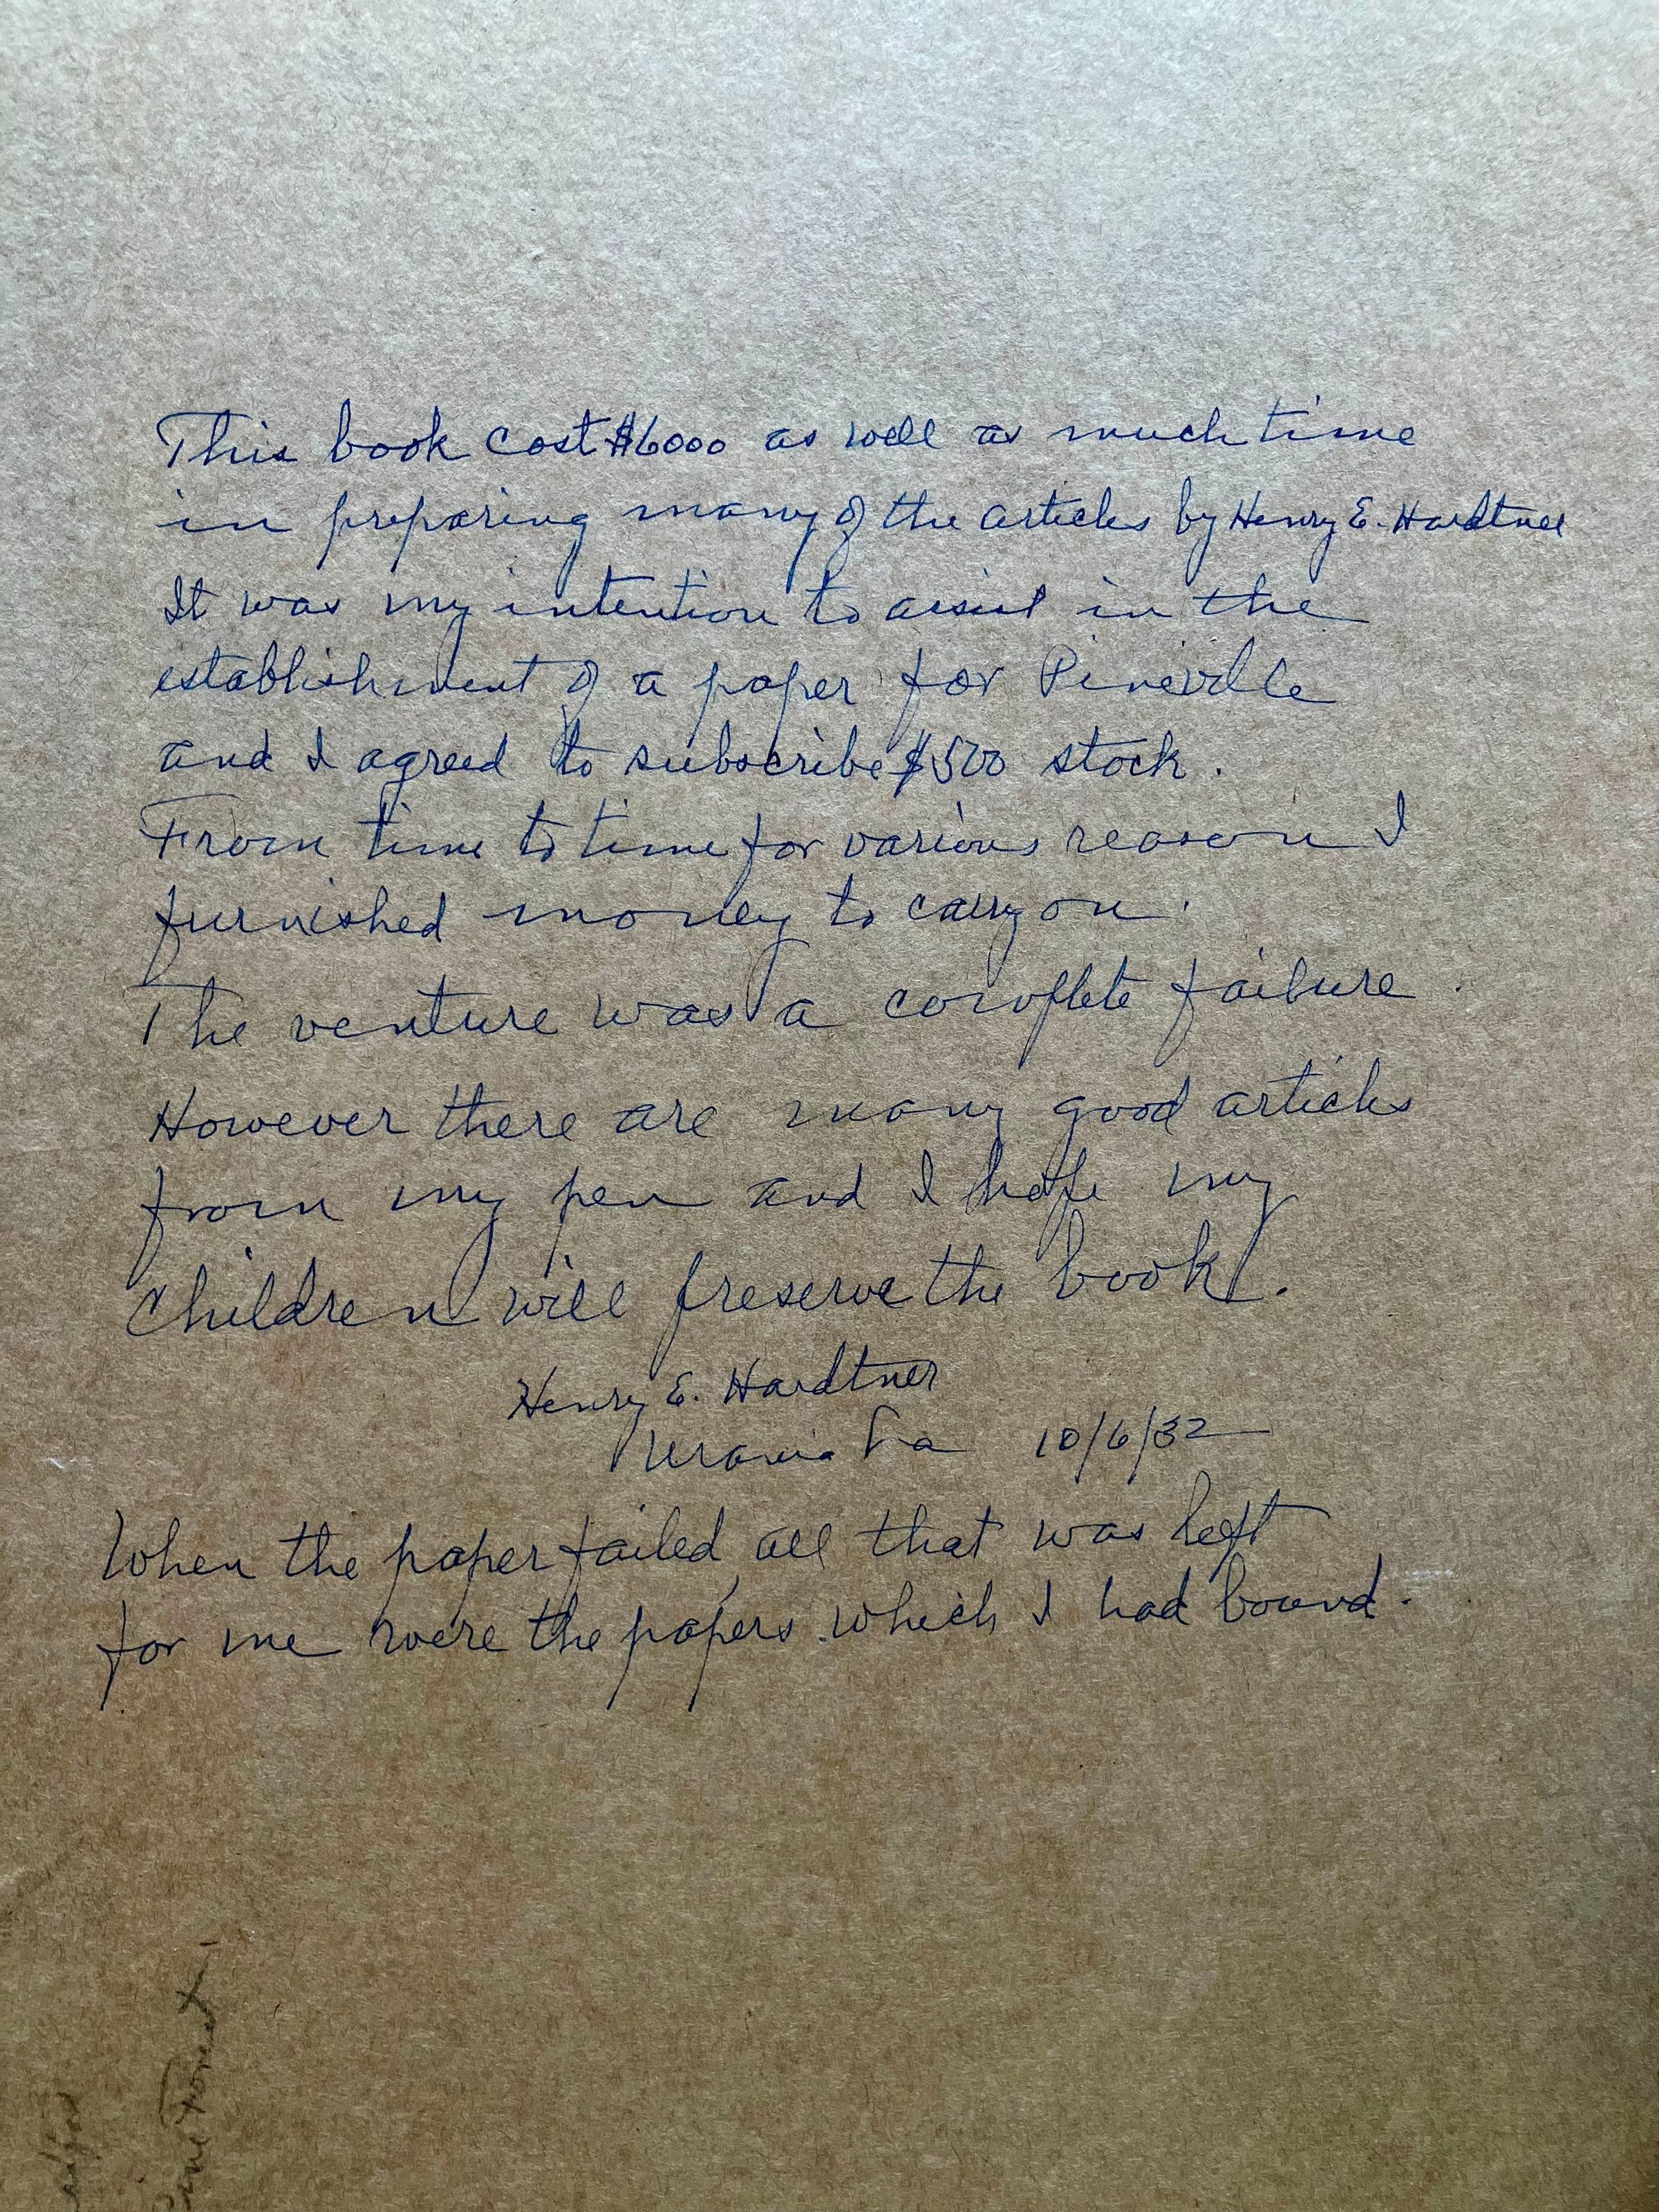 This book cost $6000 as well as much time
in preparing many of the articles by Henry E. Hardtner
It was my intention to assist in the
establishment of a paper for Pineville
and I agreed to subscribe $500 stock.
From time to time for various reason I
furnished money to carry on.
The venture was a complete failure.
However there are many good articles
from my pen and I hope my
children will preserve the book.
Henry E. Hardtner
Urania La 10/6/32
When the paper failed, all that was left
for me were the papers which I had bound.